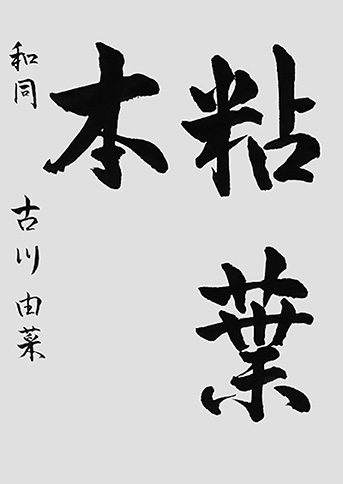 粘葉
本
和同 古川由菜